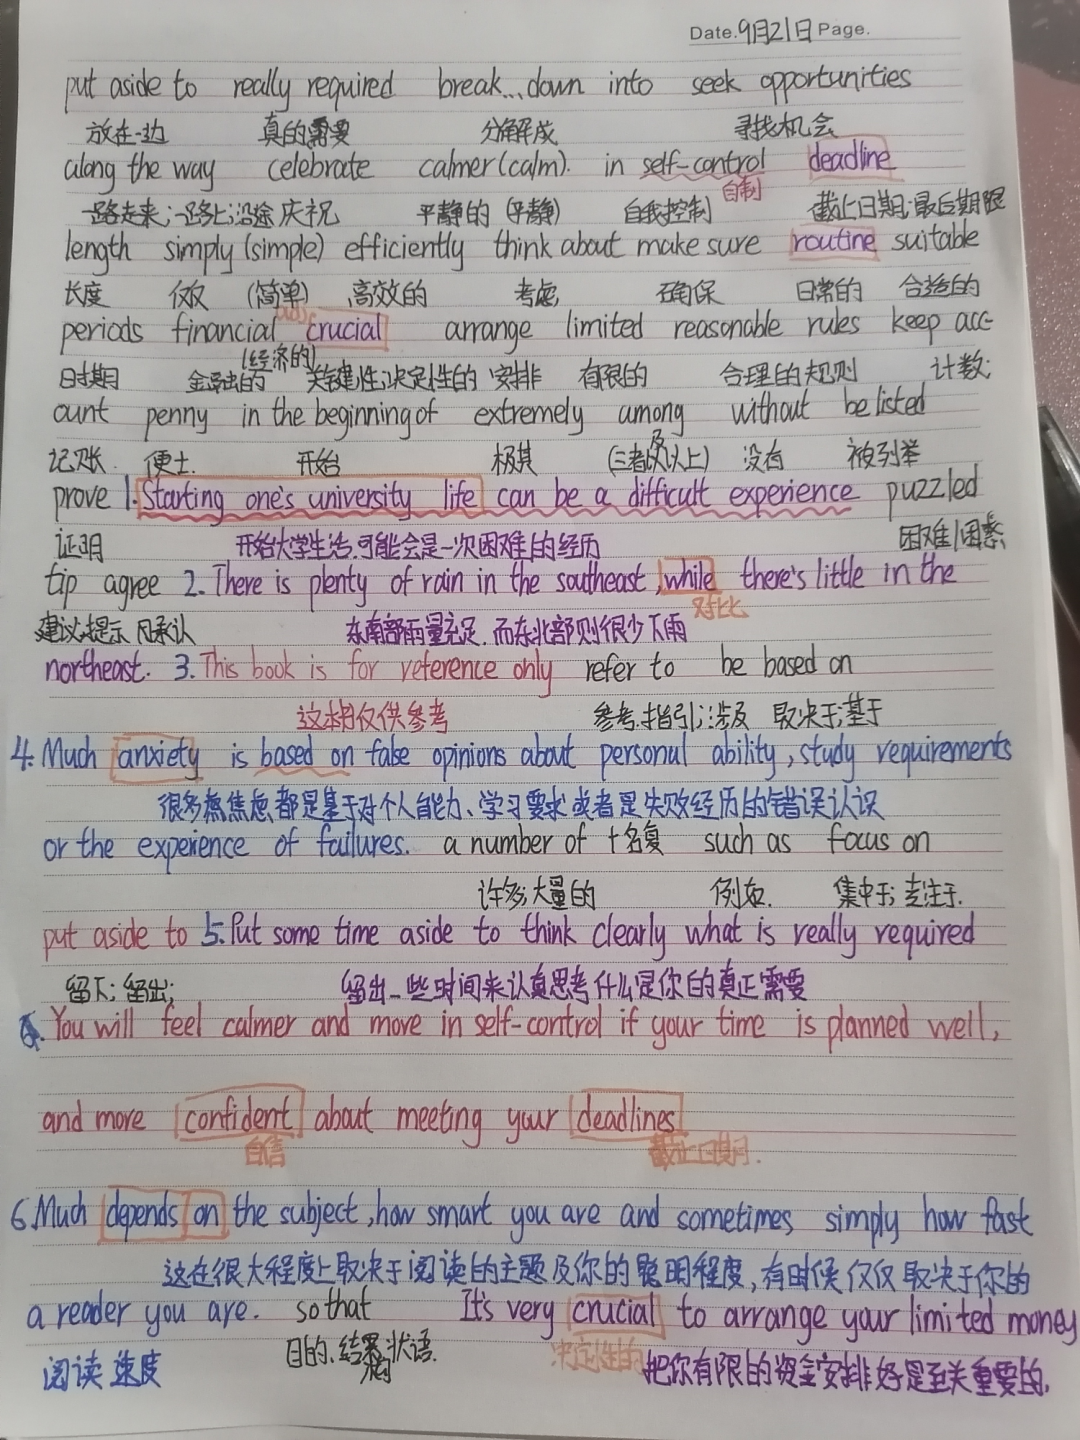 Date.9月21日 Page.
put aside to really required break...down into seek opportunities
放在一边 真的需要 分解成 寻找机会
along the way celebrate calmer(calm). in self-control deadline
自制
一路走来;一路上;沿途 庆祝 平静的 (平静) 自我控制 截止日期;最后期限
length simply (simple) efficiently think about make sure routine suitable
长度 仅仅 (简单) 高效的 考虑 确保 日常的 合适的
periods financial crucial arrange limited reasonable rules keep acc-
(经济的)
时期 金融的 关键性;决定性的 安排 有限的 合理的规则 计数;
ount penny in the beginning of extremely among without be listed
记账. 便士. 开始 极其 (三者及以上) 没有 被列举
prove 1.Starting one's university life can be a difficult experience puzzled
证明 开始大学生活,可能会是一次困难的经历 困难/困惑
tip agree 2.There is plenty of rain in the southeast, while there's little in the
对比
建议;提示 承认 东南部雨量充足.而东北部则很少下雨
northeast. 3.This book is for reference only refer to be based on
这本书仅供参考 参考.指引;涉及 取决于;基于
4.Much anxiety is based on false opinions about personal ability, study requirements
很多焦虑都是基于对个人能力、学习要求或者是失败经历的错误认识
or the experience of failures. a number of +名复 such as focus on
许多;大量的 例如. 集中于;专注于.
put aside to 5.Put some time aside to think clearly what is really required
留下;留出; 留出一些时间来认真思考什么是你的真正需要
You will feel calmer and more in self-control if your time is planned well,
and more confident about meeting your deadlines
自信 截止日期.
6.Much depends on the subject, how smart you are and sometimes simply how fast
这在很大程度上取决于阅读的主题及你的聪明程度,有时候仅仅取决于你的
a reader you are. so that It's very crucial to arrange your limited money
阅读速度 目的、结果状语. 决定性的 把你有限的资金安排好是至关重要的.